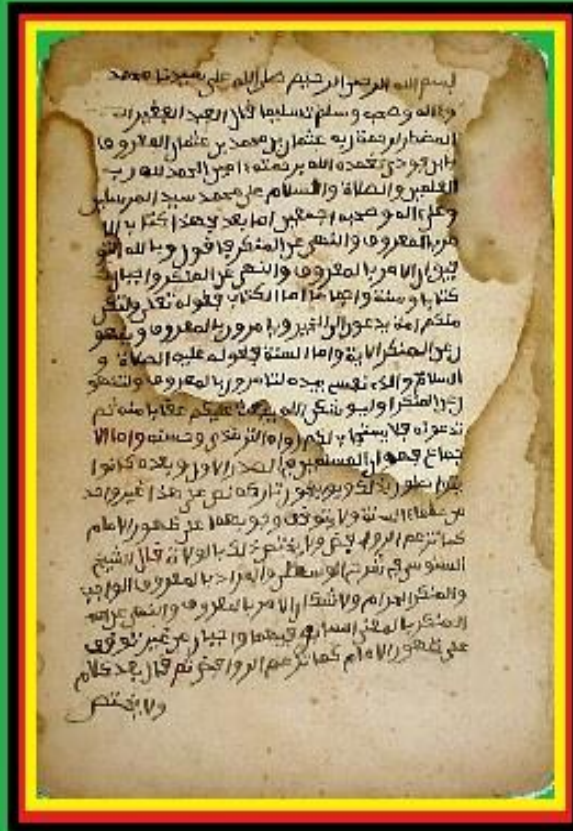 بسم الله الرحمن الرحيم صلى الله على سيدنا محمد
وءاله وصحبه وسلم تسليما قال العبد الفقير الـ
المضطر لرحمة ربه عثمان بن محمد بن عثمان المعروف
بابن فودي تغمده الله برحمته ءامين الحمد لله رب
العلمين والصلاة والسلام على محمد سيد المرسلين
وعلى ءاله وصحبه اجمعين اما بعد فهذا كتاب الا
مر بالمعروف والنهي عن المنكر فاقول وبالله التو
فيق ان الامر بالمعروف والنهي عن المنكر واجبان
كتابا وسنة واجماعا اما الكتاب فقوله تعلى ولتكن
منكم امة يدعون الى الخير ويامرون بالمعروف وينهو
ن عن المنكر الاية واما السنة فقوله عليه الصلاة و
السلام والذي نفسي بيده لتامرون بالمعروف ولتنهو
ن عن المنكر او ليوشكن الله يبعث عليكم عقابا منه ثم
تدعونه فلا يستجاب لكم رواه الترمذي وحسنه واما الا
جماع فهو ان المسلمين في الصدر الاول وبعده كانوا
يتواصون بذلك ويوبخون تاركه نص على هذا غير واحد
من علماء السنة ولا يتوقف وجوبهما على ظهور الامام
كما تزعم الروافض ولا يختص ذلك بالولاة قال الشيخ
السنوسي في شرح الوسطى والمراد بالمعروف الواجب
والمنكر الحرام ولا شك ان الامر بالمعروف والنهي عن
المنكر بالمعنى السابق فيهما واجبان من غير توقف
على ظهور الامام كما تزعم الروافض ثم قال بعد كلام
ولا يختص